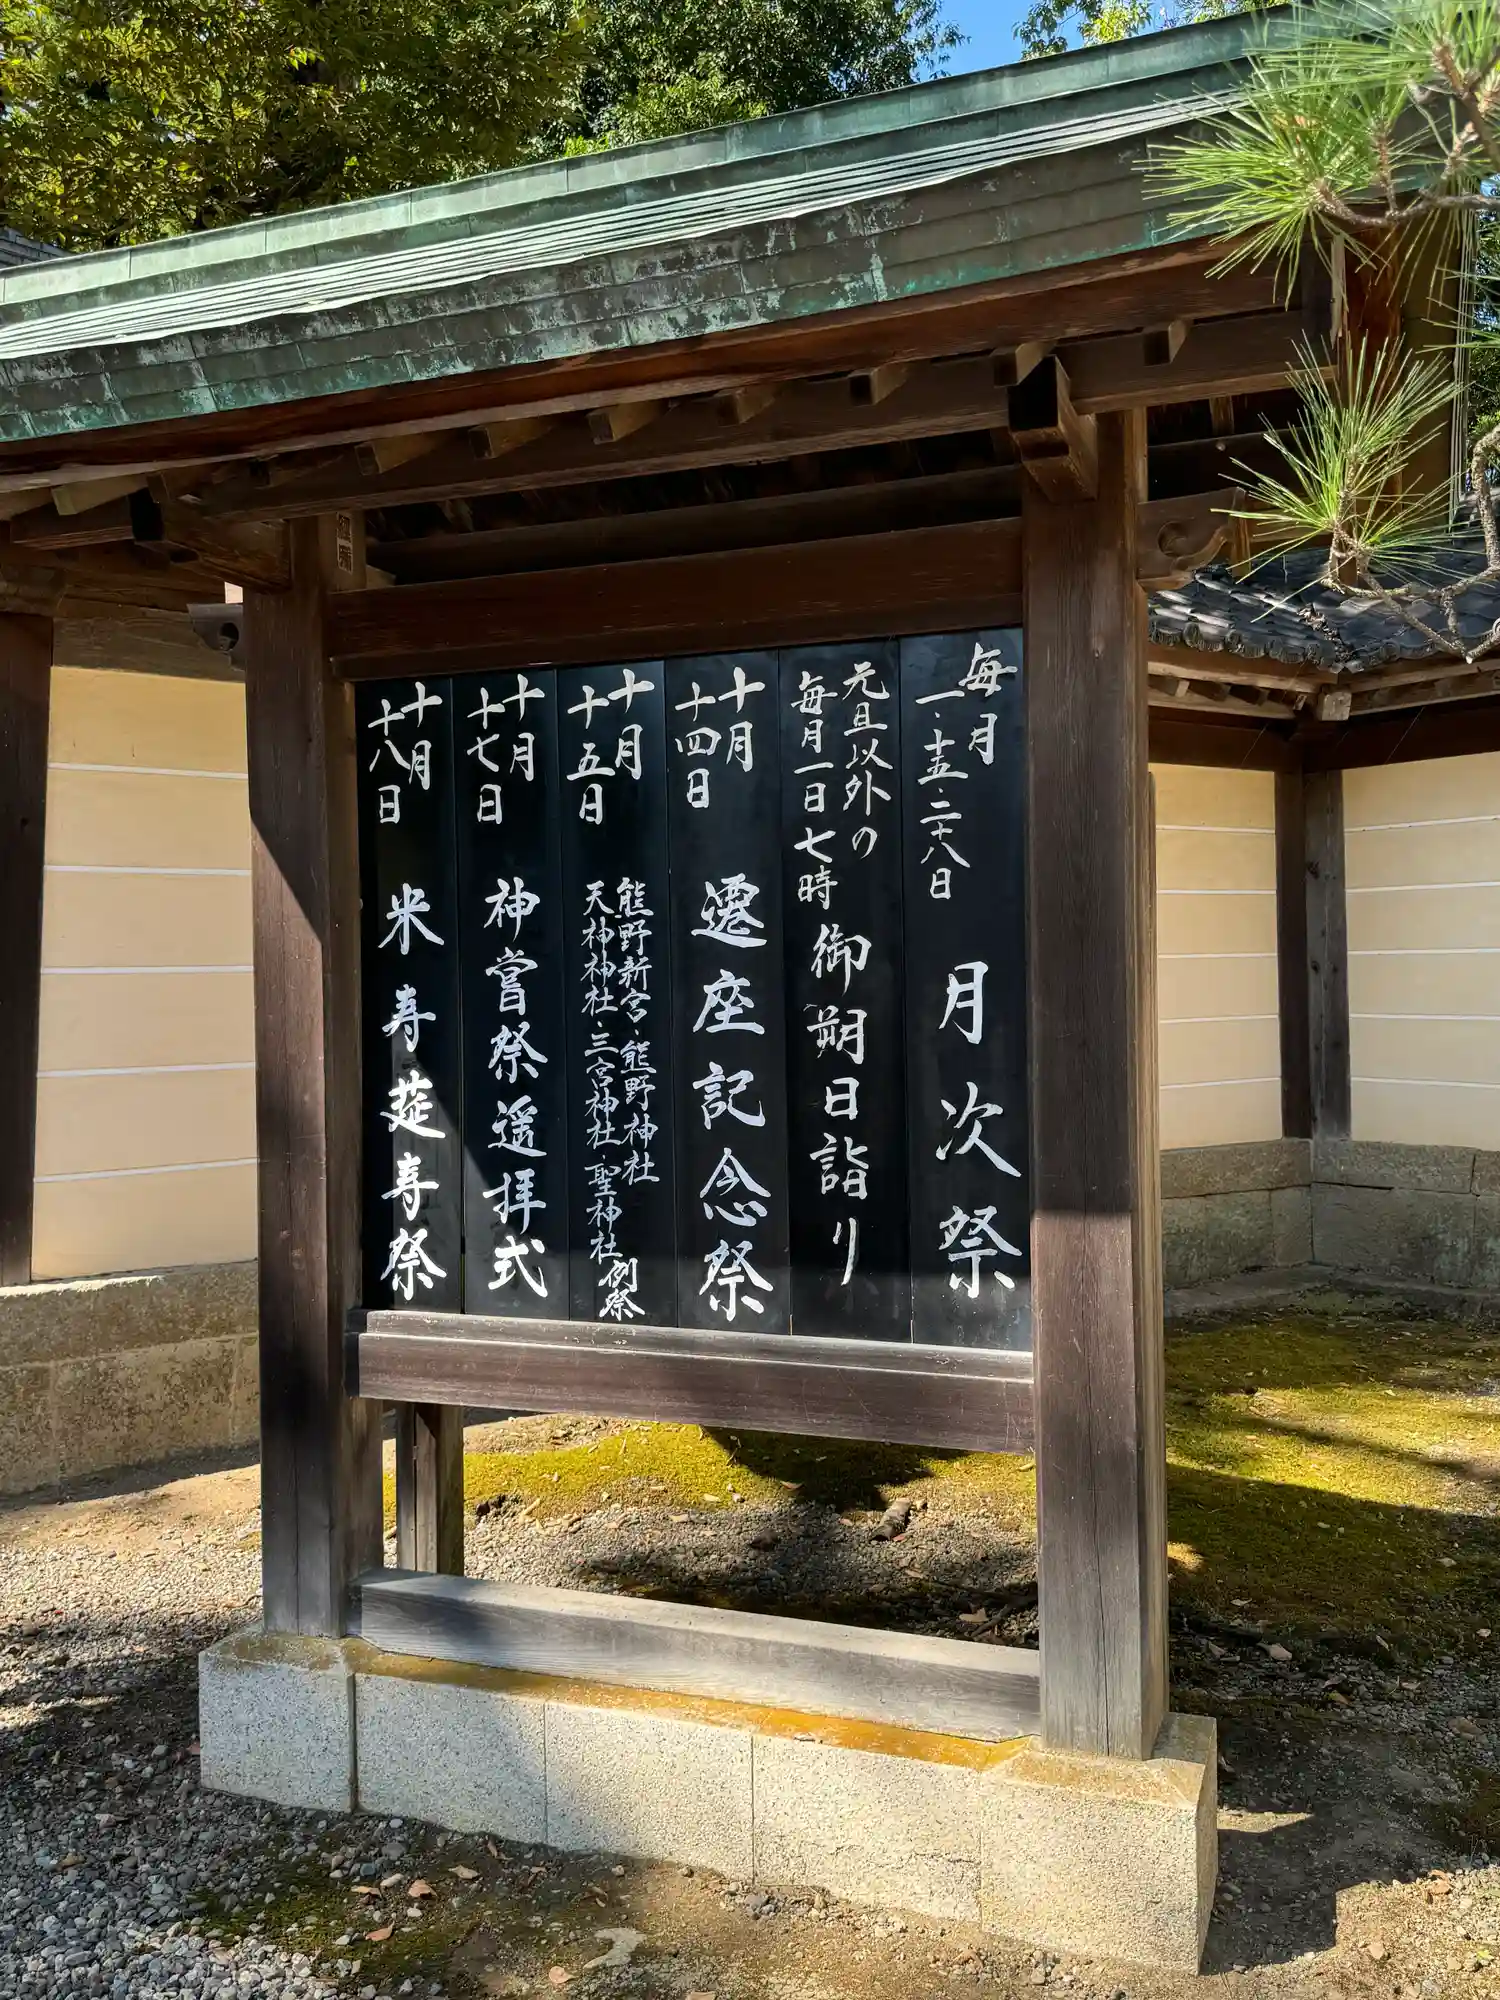 毎月
一・十五・二十八日
月次祭
元旦以外の
毎月一日七時
御朔日詣り
十月
十四日
遷座記念祭
十月
十五日
熊野新宮・熊野神社
天神神社・三宮神社・聖神社
例祭
十月
十七日
神嘗祭遥拝式
十月
十八日
米寿莚寿祭